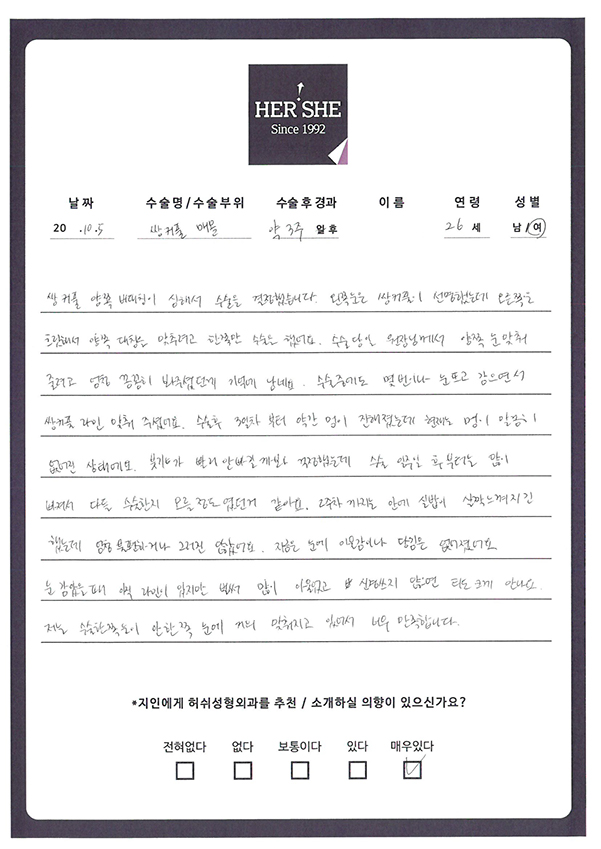 HER SHE
Since 1992
날짜 수술명/수술부위 수술후경과 이름 연령 성별
20 .10.5 쌍커플 매몰 약 3주 일후 26 세 남/여
쌍커플 양쪽 비대칭이 심해서 수술을 결정했습니다. 왼쪽눈은 쌍커플이 선명했는데 오른쪽은
흐릿해서 양쪽 대칭을 맞추려고 한쪽만 수술을 했어요. 수술당일 원장님께서 양쪽 눈 맞춰
줄려고 엄청 꼼꼼히 봐주셨던게 기억에 남네요. 수술중에도 몇번이나 눈뜨고 감으면서
쌍커풀 라인 맞춰 주셨어요. 수술후 3일차 부터 약간 멍이 진해졌는데 현재는 멍이 말끔히
없어진 상태에요. 붓기가 빨리 안빠질까봐 걱정했는데 수술 일주일 후부터는 많이
빠져서 다들 수술한지 모를정도 였던거 같아요. 2주차 까지는 안에 실밥이 살짝느껴지긴
했는데 엄청 불편하거나 그러진 않았어요. 지금은 눈에 이물감이나 당김은 없어졌어요
눈 감았을때 아직 라인이 있지만 벌써 많이 아물었고 신경쓰지 않으면 티도 크게 안나요.
저는 수술한쪽눈이 안한쪽 눈에 거의 맞춰지고 있어서 너무 만족합니다.
*지인에게 허쉬성형외과를 추천 / 소개하실 의향이 있으신가요?
전혀없다 없다 보통이다 있다 매우있다